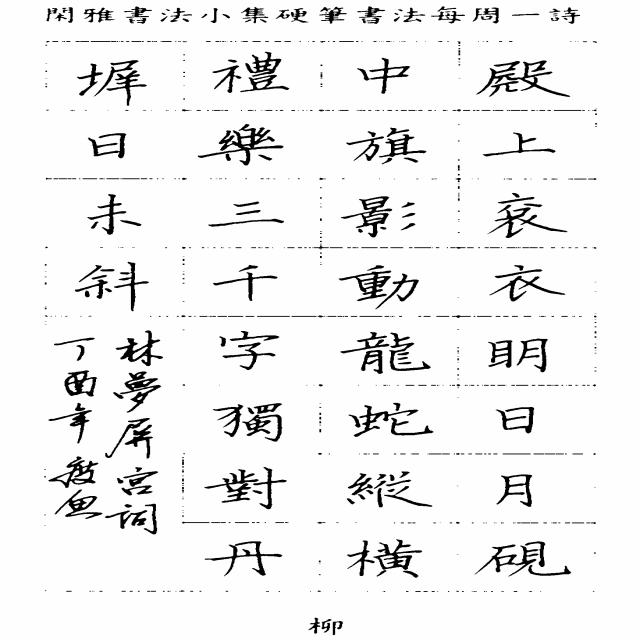 閑雅書法小集硬筆書法每周一詩
殿上袞衣眀日月硯
中旗影動龍蛇縱橫
禮樂三千字獨對丹
墀日未斜
林夢屏宮詞
丁酉年瘦魚
柳